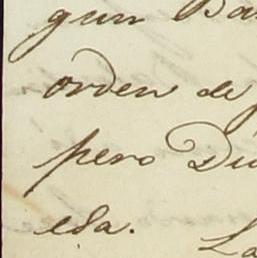 gun Ba
orden de
pero Di
esa.
La